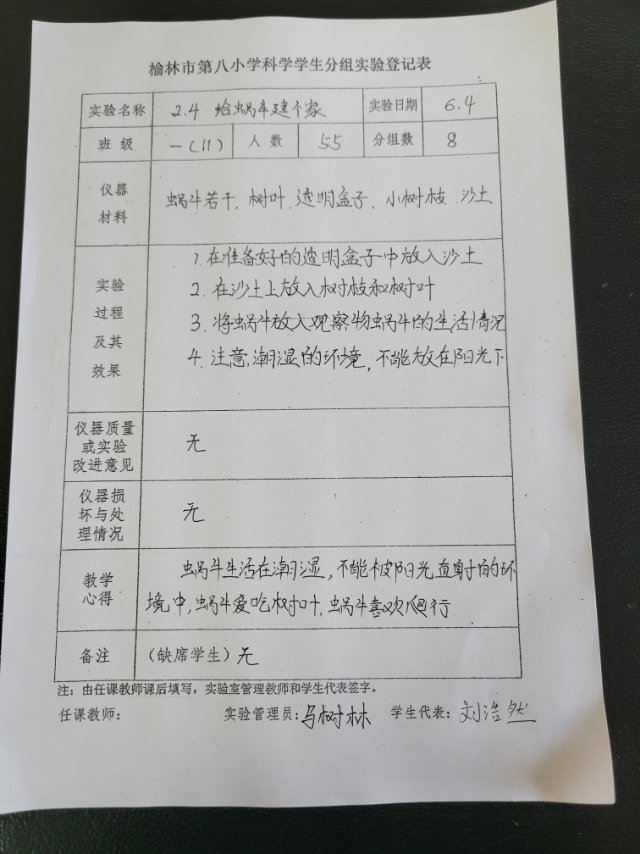 榆林市第八小学科学学生分组实验登记表
实验名称 2.4 给蜗牛建个家 实验日期 6.4
班 级 一(11) 人 数 55 分组数 8
仪器
材料
蜗牛若干、树叶、透明盒子、小树枝 沙土
实验
过程
及其
效果
1.在准备好的透明盒子中放入沙土
2.在沙土上放入树枝和树叶
3.将蜗牛放入观察物蜗牛的生活情况
4.注意潮湿的环境,不能放在阳光下
仪器质量
或实验
改进意见
无
仪器损
坏与处
理情况
无
教学
心得
蜗牛生活在潮湿,不能被阳光直射的环
境中,蜗牛爱吃树叶,蜗牛喜欢爬行
备注 (缺席学生)无
注:由任课教师课后填写,实验室管理教师和学生代表签字。
任课教师: 实验管理员:马树林 学生代表:刘浩然